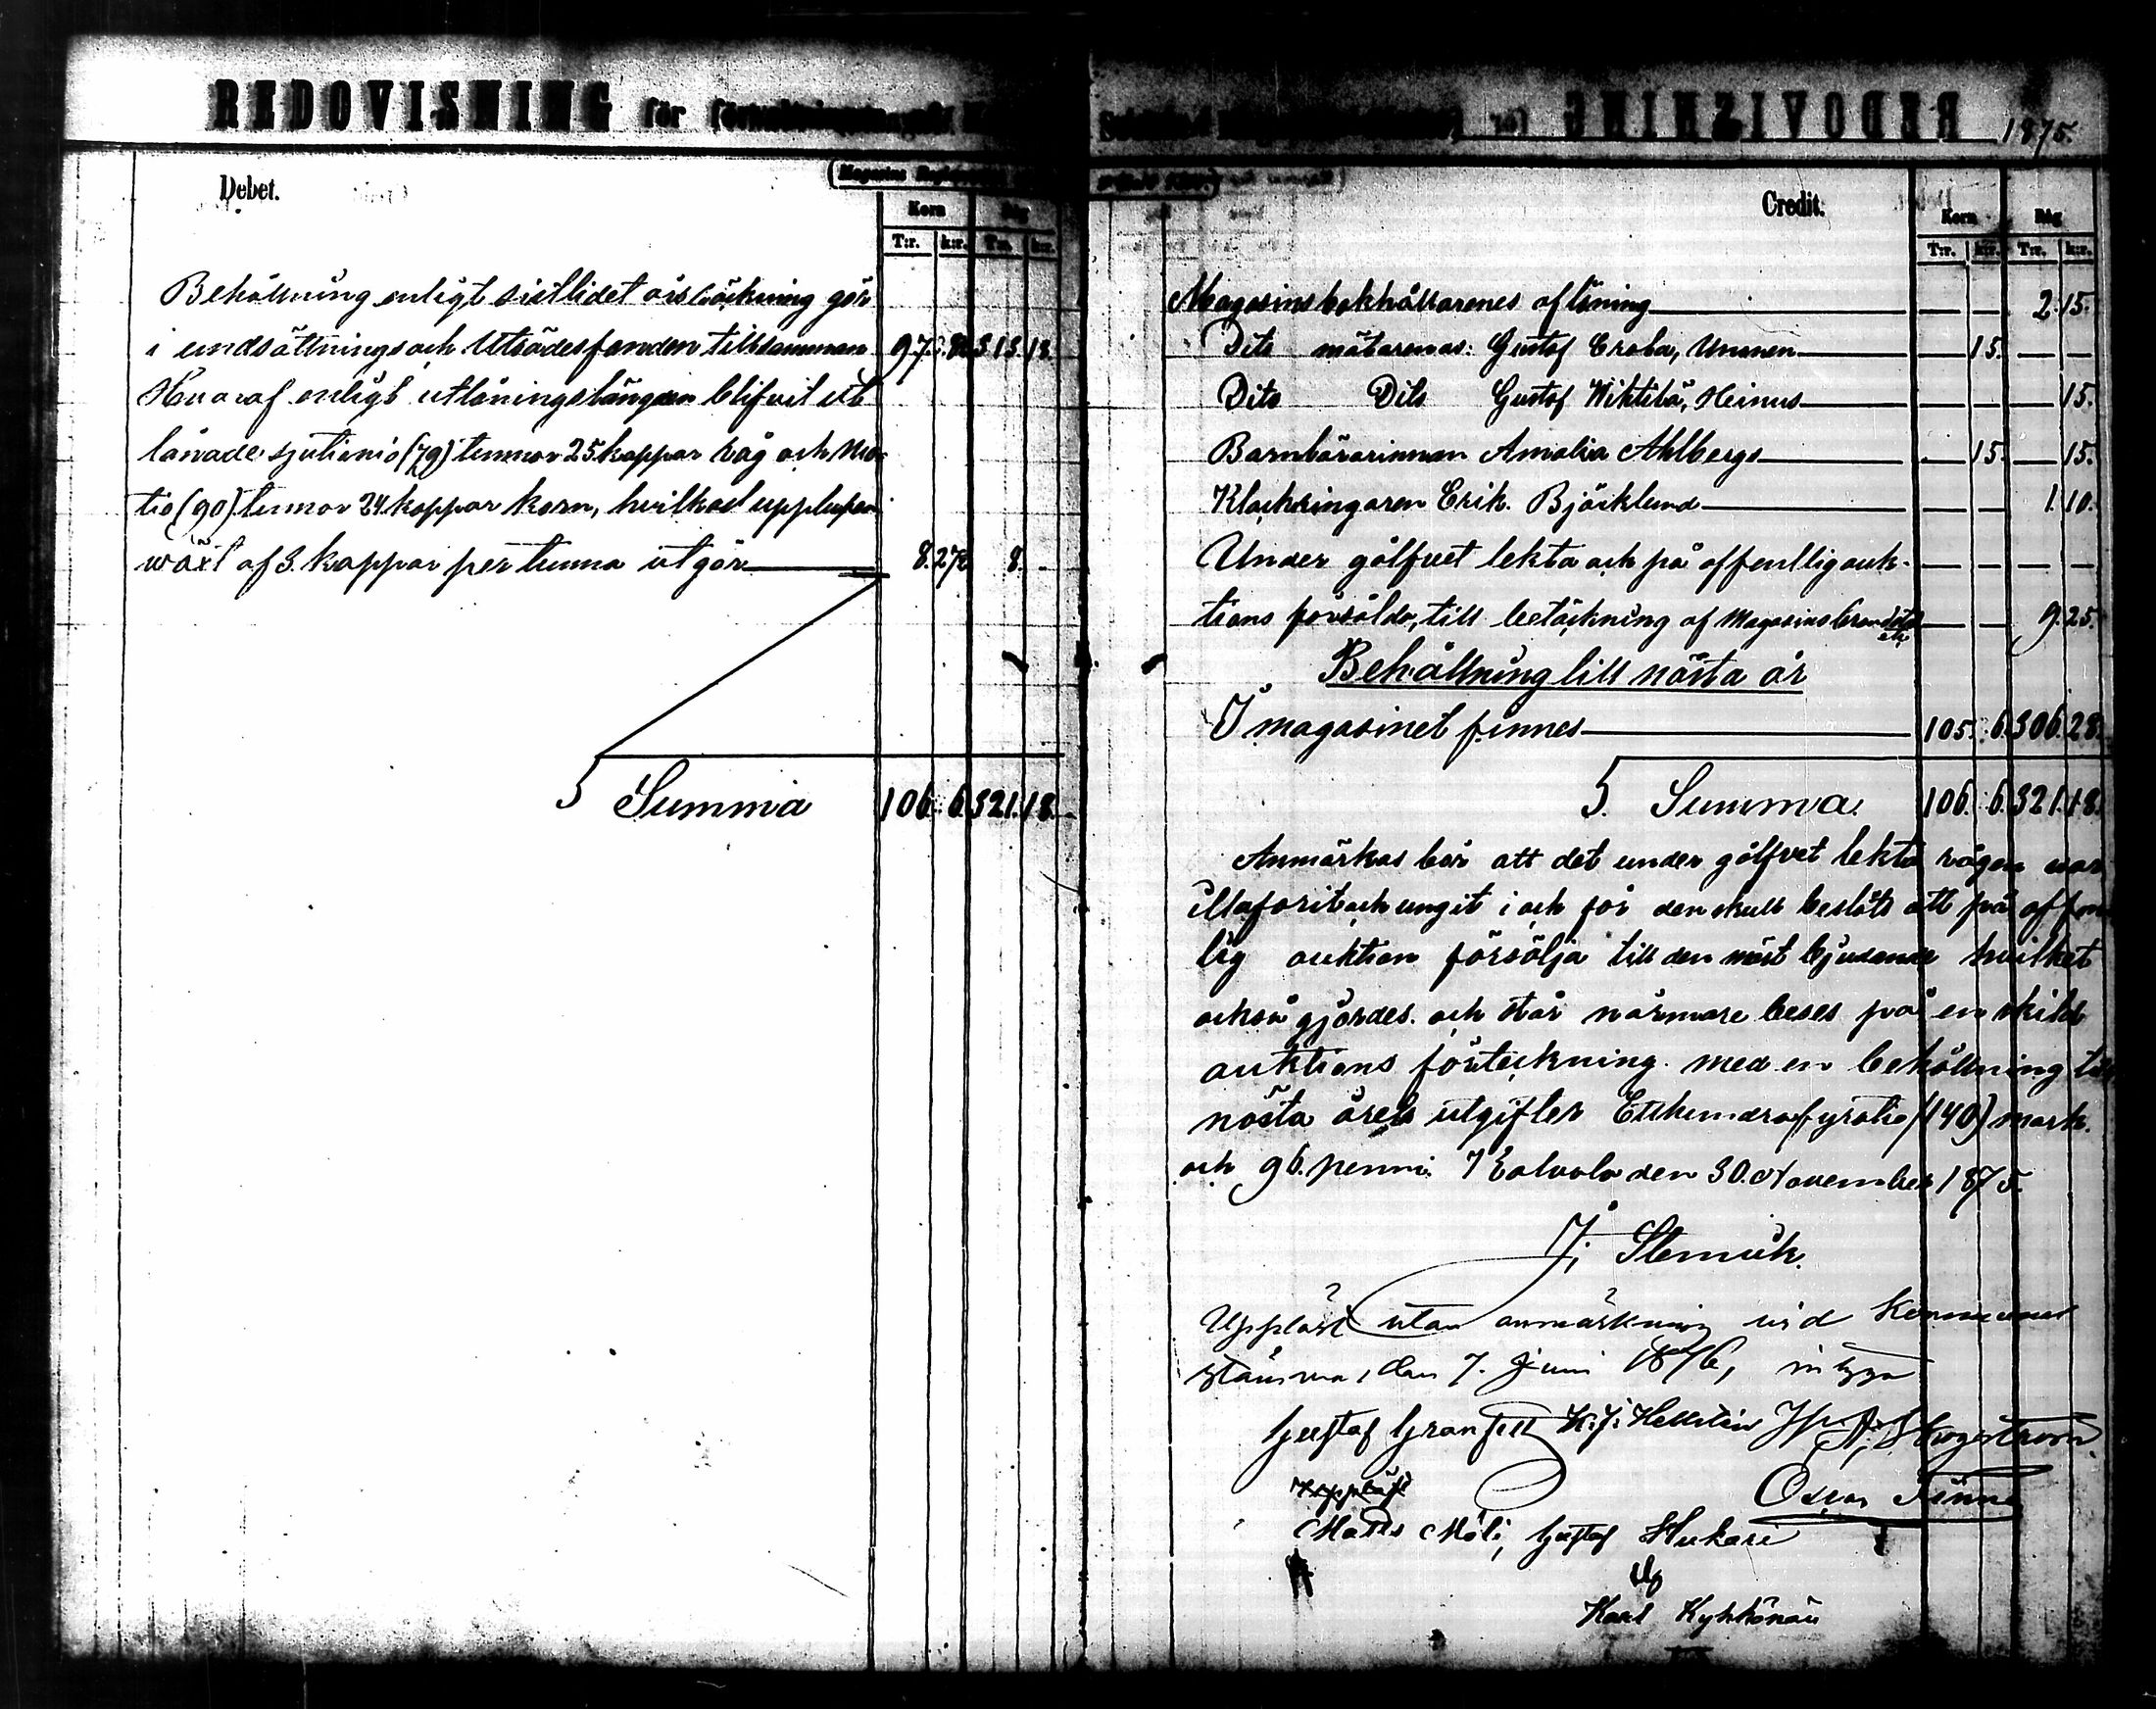 REDOVISNING för
Debet.
Korn Råg
T:r. k:r. T:r. k:r.
Behållning enligt sistlidet års räkning gör
i undsättnings och Utsädesfonden tillsamman 97. 313. 18.
Hvaraf enligt utlåningslängden blifvit ut
lånade sjutionio (79) tunnor 25 kappor råg och
tio (90) tunnor 24 kappor korn, hvilkas upplupen
växt af 3. kappor per tunna utgör 8. 8. -
S Summa 106. 6. 321. 18.
1875.
Credit.
Korn Råg
T:r. k:r. T:r. k:r.
Magasinsbokhållarenes aflöning — — 2. 15.
Dito mätarenas: Gustof Erola, Ummen — 15. — —
Dito Dito Gustof Wiktilä, Heinus — — — 15.
Barnbärarinnan Amalia Ahlbergs — 15. — 15.
Klockringaren Erik. Björklund — — 1. 10.
Under gålfvet lekta och på offentlig auk- — — — —
tions försålda, till betäckning af Magasins — — 9. 25.
Behållning till nästa år
I magasinet finnes 105. 6. 306. 28.
S. Summa. 106. 6. 321. 18.
Anmärkas bör att det under gålfvet lekta rågen var
illaforit och ungit i och för den skull beslöts att på offen
lig auktion försälja till den mäst bjudande hvilket
också gjördes. och står närmare beses på en skild
auktions förteckning. med en behållning till
nästa årets utgifter Etthundrafyratio (140) mark.
och 96. penni. Kalvola den 30. November 1875.
Uppläst utan anmärkning vid Kommunal
stämma, den 7. Juni 1876, intyga
Gustaf Granfelt K. J. Hellstén
Oscar
Matts Möli, Gustaf Hukari
Karl Kyhkönän